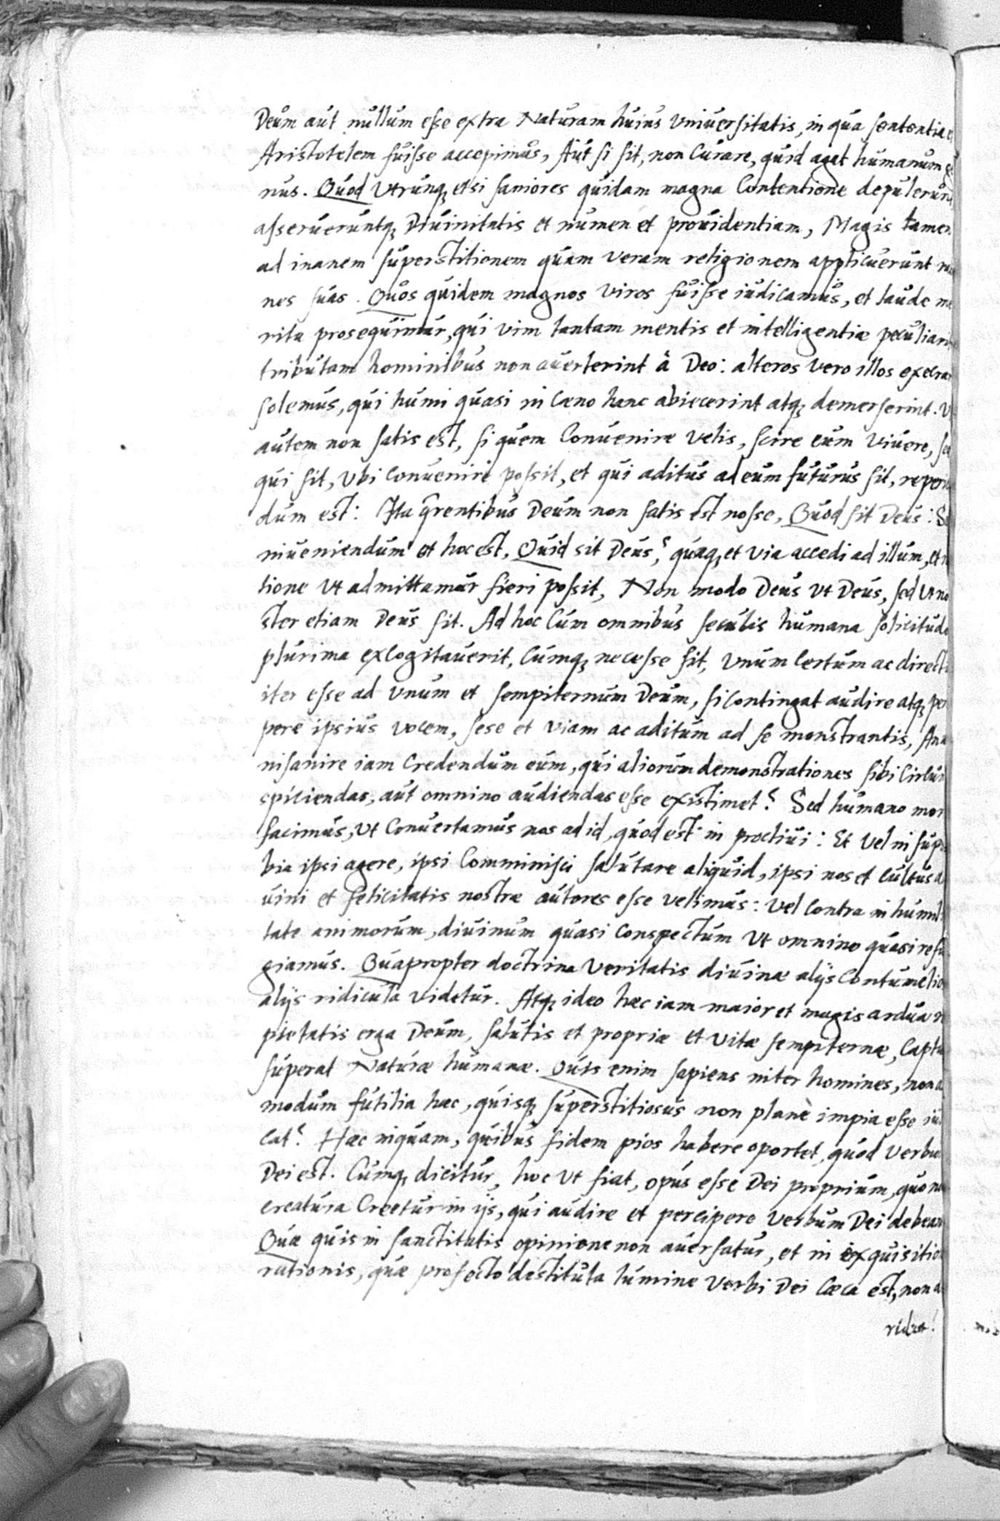 Deum aut nullum esse extra Naturam huius Vniuersitatis, in qua sententia e
Aristotelem fuisse accepimus, Aut si sit, non Curare, quid agat humanum ge
nus. Quod Vtrunq; etsi saniores quidam magna Contentione depulerunt
asserueruntq; Diuinitatis et numen et prouidentiam, Magis tamen
ad inanem superstitionem quam veram religionem applicuerunt
nes suas. Quos quidem magnos Viros fuisse iudicamus, et laude me
rita prosequimur, qui vim tantam mentis et intelligentiæ peculiari
tributam hominibus non auerterint à Deo: alteros Vero illos execrari
solemus, qui humi quasi in Cæno hanc abiecerint atq; demerserint. V
autem non satis est, si quem Conuenire Velis, scire eum Viuere, se
qui sit, Vbi Conuenire possit, et qui aditus ad eum futurus sit, reperiu
dum est: Ita q̄rentibus Deum non satis est nosse, Quod sit Deus: Se
inueniendum et hoc est, Quid sit Deus? quaq; et via accedi ad illum, et
tione Vt admittamur fieri possit, Non modo Deus Vt Deus, sed Vt no
ster etiam Deus sit. Ad hoc Cum omnibus seculis humana solicitudo
plurima excogitauerit, Cumq; necesse sit, Vnum Certum ac direct
iter esse ad Vnum et sempiternum Deum, si contingat audire atq; per
pere ipsius vocem, sese et viam ac aditum ad se monstrantis, An
nisanire iam Credendum eum, qui aliorum demonstrationes sibi Circu
spiciendas, aut omnino audiendas esse existimet? Sed humano mor
facimus, Vt Conuertamus nos ad id, quod est in procliui: Et Vel in supe
bia ipsi agere, ipsi Comminisci salutare aliquid, ipsi nos et Cultus
uini et felicitatis nostræ autores esse velimus: Vel Contra in humili
tate animorum, diuinum quasi Conspectum Vt omnino quasi refu
giamus. Quapropter doctrina Veritatis diuinæ alijs Contumelio
alijs ridicula Videtur. Atq; ideo hæc iam maior et magis ardua
pietatis erga Deum, salutis et propriæ et vitæ sempiternæ, Captu
superat Naturæ humanæ. Quis enim sapiens inter homines, non
modum futilia hæc, quisq; superstitiosus non planè impia esse iu
cat? Hæc inquam, quibus fidem pios habere oportet, quod Verbu
Dei est. Cumq; dicitur, hoc Vt fiat, opus esse Dei proprium, quo
creatura Creetur in ijs, qui audire et percipere Verbum Dei debean
Quæ quis in sanctitatis opinione non auersatur, et in exquisitio
rationis, quæ profecto destituta lumine Verbi Dei Cæca est, non